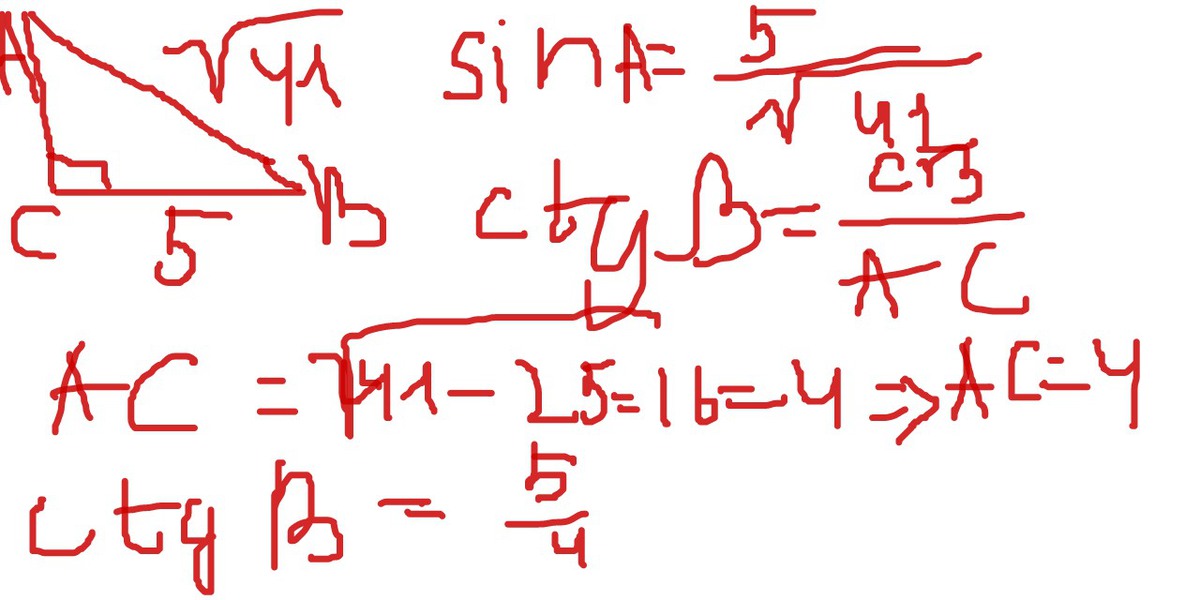 A √41 sin A = 5/√41
C 5 B ctg B = CB/AC
AC = √41 - 25 = 16 = 4 ⇒ AC = 4
ctg B = 5/4